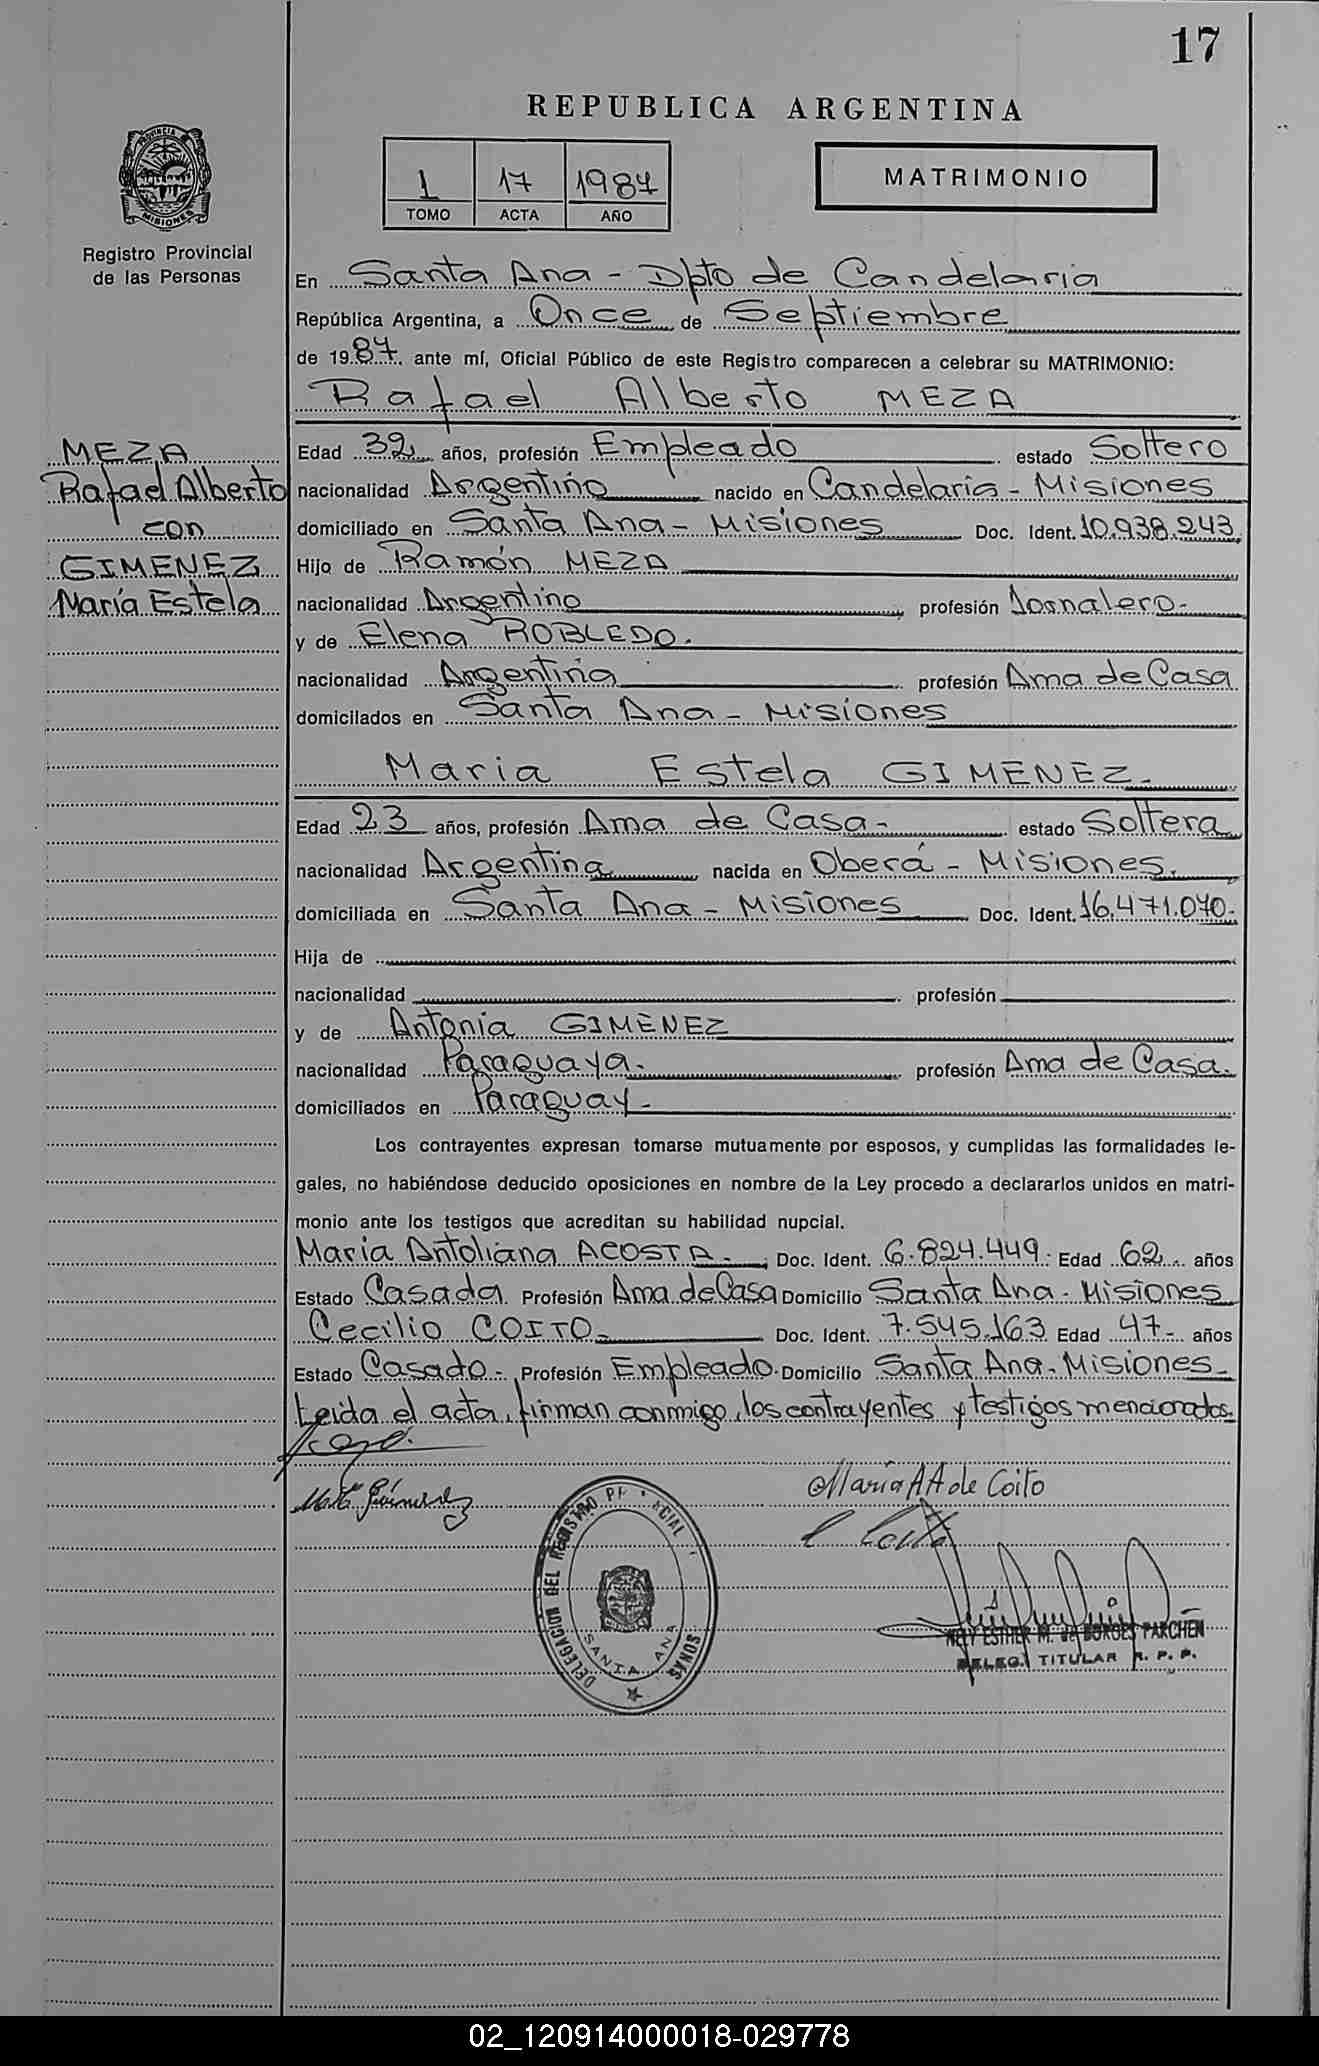 17
REPUBLICA ARGENTINA
PROVINCIA
MISIONES
Registro Provincial
de las Personas
1 17 1987
TOMO ACTA AÑO
MATRIMONIO
En Santa Ana - Dpto de Candelaria
República Argentina, a Once de Septiembre
de 1987. ante mí, Oficial Público de este Registro comparecen a celebrar su MATRIMONIO:
Rafael Alberto MEZA
MEZA
Rafael Alberto
con
GIMENEZ
María Estela
Edad 32 años, profesión Empleado estado Soltero
nacionalidad Argentino nacido en Candelaria - Misiones
domiciliado en Santa Ana - Misiones Doc. Ident. 10.938.243
Hijo de Ramón MEZA
nacionalidad Argentino profesión Jornalero-
y de Elena ROBLEDO.
nacionalidad Argentina profesión Ama de Casa
domicilados en Santa Ana - Misiones
Maria Estela GIMENEZ-
Edad 23 años, profesión Ama de Casa- estado Soltera
nacionalidad Argentina nacida en Oberá - Misiones.
domiciliada en Santa Ana - Misiones Doc. Ident. 16.471.070-
Hija de
nacionalidad profesión
y de Antonia GIMENEZ
nacionalidad Paraguaya. profesión Ama de Casa.
domiciliados en Paraguay-
Los contrayentes expresan tomarse mutuamente por esposos, y cumplidas las formalidades le-
gales, no habiéndose deducido oposiciones en nombre de la Ley procedo a declararlos unidos en matri-
monio ante los testigos que acreditan su habilidad nupcial.
Maria Antoliana ACOSTA- Doc. Ident. 6.824.449. Edad 62 años
Estado Casada Profesión Ama de Casa Domicilio Santa Ana - Misiones
Cecilio COITO- Doc. Ident. 7.545.163 Edad 47- años
Estado Casado- Profesión Empleado. Domicilio Santa Ana - Misiones-
Leida el acta, firman conmigo, los contrayentes y testigos mencionados.
María A A de Coito
C Coito
DELEGACION DEL REGISTRO
SANTA ANA
NELY ESTHER M. de BORGES PARCHEN
DELEG. TITULAR R. P. P.
02_120914000018-029778